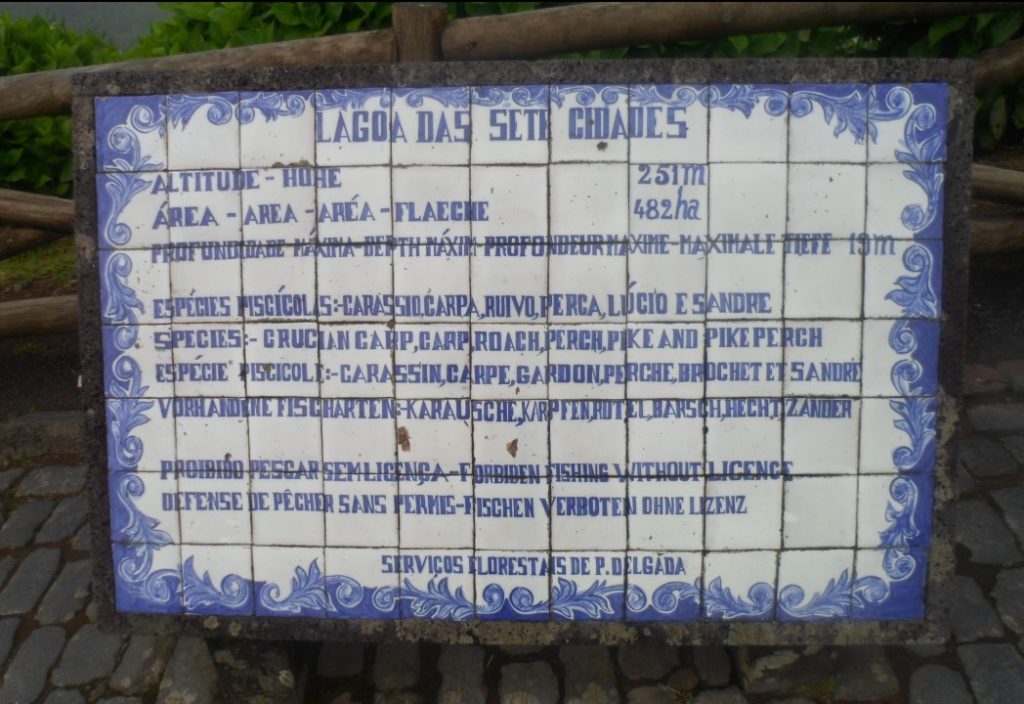 LAGOA DAS SETE CIDADES
ALTITUDE - HÖHE 251m
ÁREA - AREA - ARÉA - FLAECHE 482ha
PROFUNDIDADE MÁXIMA-DEPTH MÁXIM PROFONDEUR MAXIME MAXIMALE TIEFE 19m
ESPÉCIES PISCÍCOLAS:-CARASSIO,CARPA,RUIVO,PERCA,LÚCIO E SANDRE
SPECIES:- CRUCIAN CARP,CARP ROACH,PERCH,PIKE AND PIKE PERCH
ESPÉCIE PISCICOLE:-CARASSIN,CARPE,GARDON,PERCHE,BROCHET ET SANDRE
VORHANDENE FISCHARTEN:-KARAUSCHE,KARPFEN,ROTEL,BARSCH,HECHT,ZANDER
PROIBIDO PESCAR SEM LICENÇA-FORBIDEN FISHING WITHOUT LICENCE
DEFENSE DE PÊCHER SANS PERMIS-FISCHEN VERBOTEN OHNE LIZENZ
SERVIÇOS FLORESTAIS DE P. DELGADA